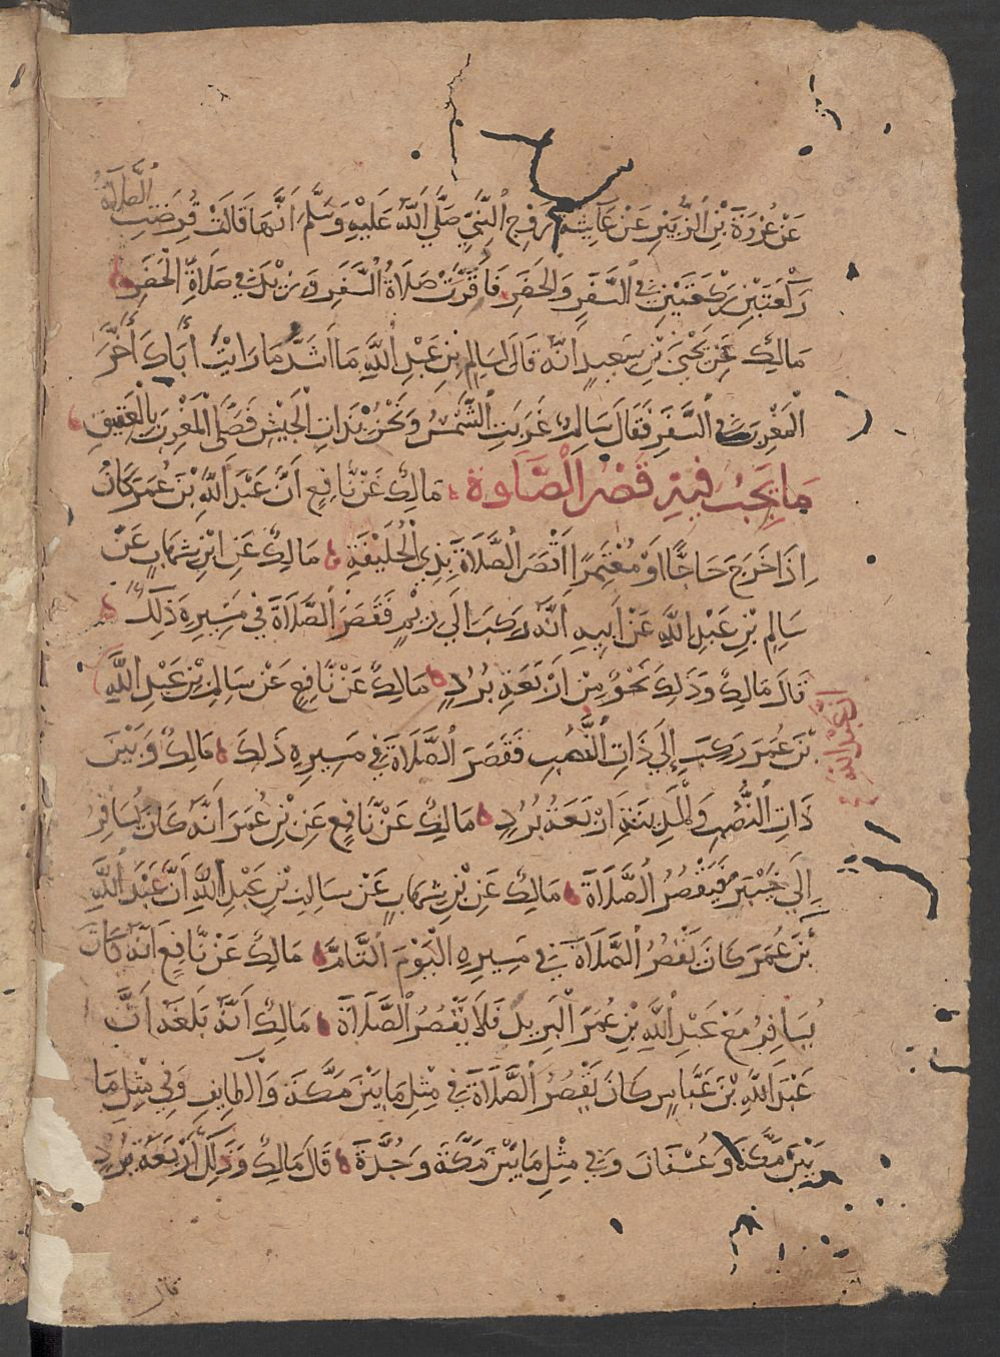 الصَّلَاةُ
عَنْ عُرْوَةَ بْنِ الزُّبَيْرِ عَنْ عَائِشَةَ زَوْجِ النَّبِيِّ صَلَّي اللَّهُ عَلَيْهِ وَسَلَّمَ اَنَّهَا قَالَتْ فُرِضَتِ
رَكْعَتَيْنِ رَكْعَتَيْنِ فِي السَّفَرِ وَالْحَضَرِ فَأُقِرَّتْ صَلَاةُ السَّفَرِ وَزِيْدَ فِي صَلَاةِ الْحَضَرِ
مَالِكٌ عَنْ يَحْيَيٰ بْنِ سَعِيدٍ انَّهُ قَالَ لِسَالِمِ بْنِ عَبْدِ اللَّهِ مَا اَشَدَّ مَا رَايْتَ أَبَاكَ أَخَّرَ
الْمَغْرِبَ فِي السَّفَرِ فَقَالَ سَالِمٌ غَرَبَتِ الشَّمْسُ وَنَحْنُ بِذَاتِ الْجَيْشِ فَصَلَّي الْمَغْرِبَ بِالْعَقِيقِ
مَا يَجِبُ فِيهِ قَصْرُ الصَّلَوة مَالِكٌ عَنْ نَّافِعٍ اَنَّ عَبْدَ اللَّهِ بْنَ عُمَرَ كَانَ
اِذَا خَرَجَ حَاجًّا اَوْ مُعْتَمِرًا قَصَرَ الصَّلَاةَ بِذِي الْحُلَيْفَةِ مَالِكٌ عَنِ ابْنِ شِهَابٍ عَنْ
سَالِمِ بْنِ عَبْدِ اللَّهِ عَنْ اَبِيهِ اَنَّهُ رَكِبَ اِلَي رِيْمٍ فَقَصَرَ الصَّلَاةَ فِي مَسِيرِهِ ذَلِكَ
قَالَ مَالِكٌ وَذَلِكَ نَحْوٌ مِنْ اَرْبَعَةِ بُرُدٍ مَالِكٌ عَنْ نَّافِعٍ عَنْ سَالِمِ بْنِ عَبْدِ اللَّهِ
اَنَّ عَبْدَ اللَّهِ
بْنَ عُمَرَ رَكِبَ اِلَي ذَاتِ النُّصُبِ فَقَصَرَ الصَّلَاةَ فِي مَسِيرِهِ ذَلِكَ مَالِكٌ وَبَيْنَ
ذَاتِ النُّصُبِ وَالْمَدِينَةِ اَرْبَعَةُ بُرُدٍ مَالِكٌ عَنْ نَّافِعٍ عَنِ بْنِ عُمَرَ اَنَّهُ كَانَ يُسَافِرُ
اِلَي خَيْبَرَ فَيَقْصُرُ الصَّلَاةَ مَالِكٌ عَنِ بْنِ شِهَابٍ عَنْ سَالِمِ بْنِ عَبْدِ اللَّهِ اَنَّ عَبْدَ اللَّهِ
بْنَ عُمَرَ كَانَ يَقْصُرُ الصَّلَاةَ فِي مَسِيرِهِ الْيَوْمَ التَّامَّ مَالِكٌ عَنْ نَّافِعٍ اَنَّهُ كَانَ
يُسَافِرُ مَعَ عَبْدِ اللَّهِ بْنِ عُمَرَ الْبَرِيدَ فَلَا يَقْصُرُ الصَّلَاةَ مَالِكٌ اَنَّهُ بَلَغَهُ اَنَّ
عَبْدَ اللَّهِ بْنَ عَبَّاسٍ كَانَ يَقْصُرُ الصَّلَاةَ فِي مِثْلِ مَا بَيْنَ مَكَّةَ وَالطَّايِفِ وَفِي مِثْلِ مَا
بَيْنَ مَكَّةَ وَعُسْفَانَ وَفِي مِثْلِ مَا بَيْنَ مَكَّةَ وَجُدَّةَ قَالَ مَالِكٌ وَذَلِكَ أَرْبَعَةُ بُرُدٍ
قال